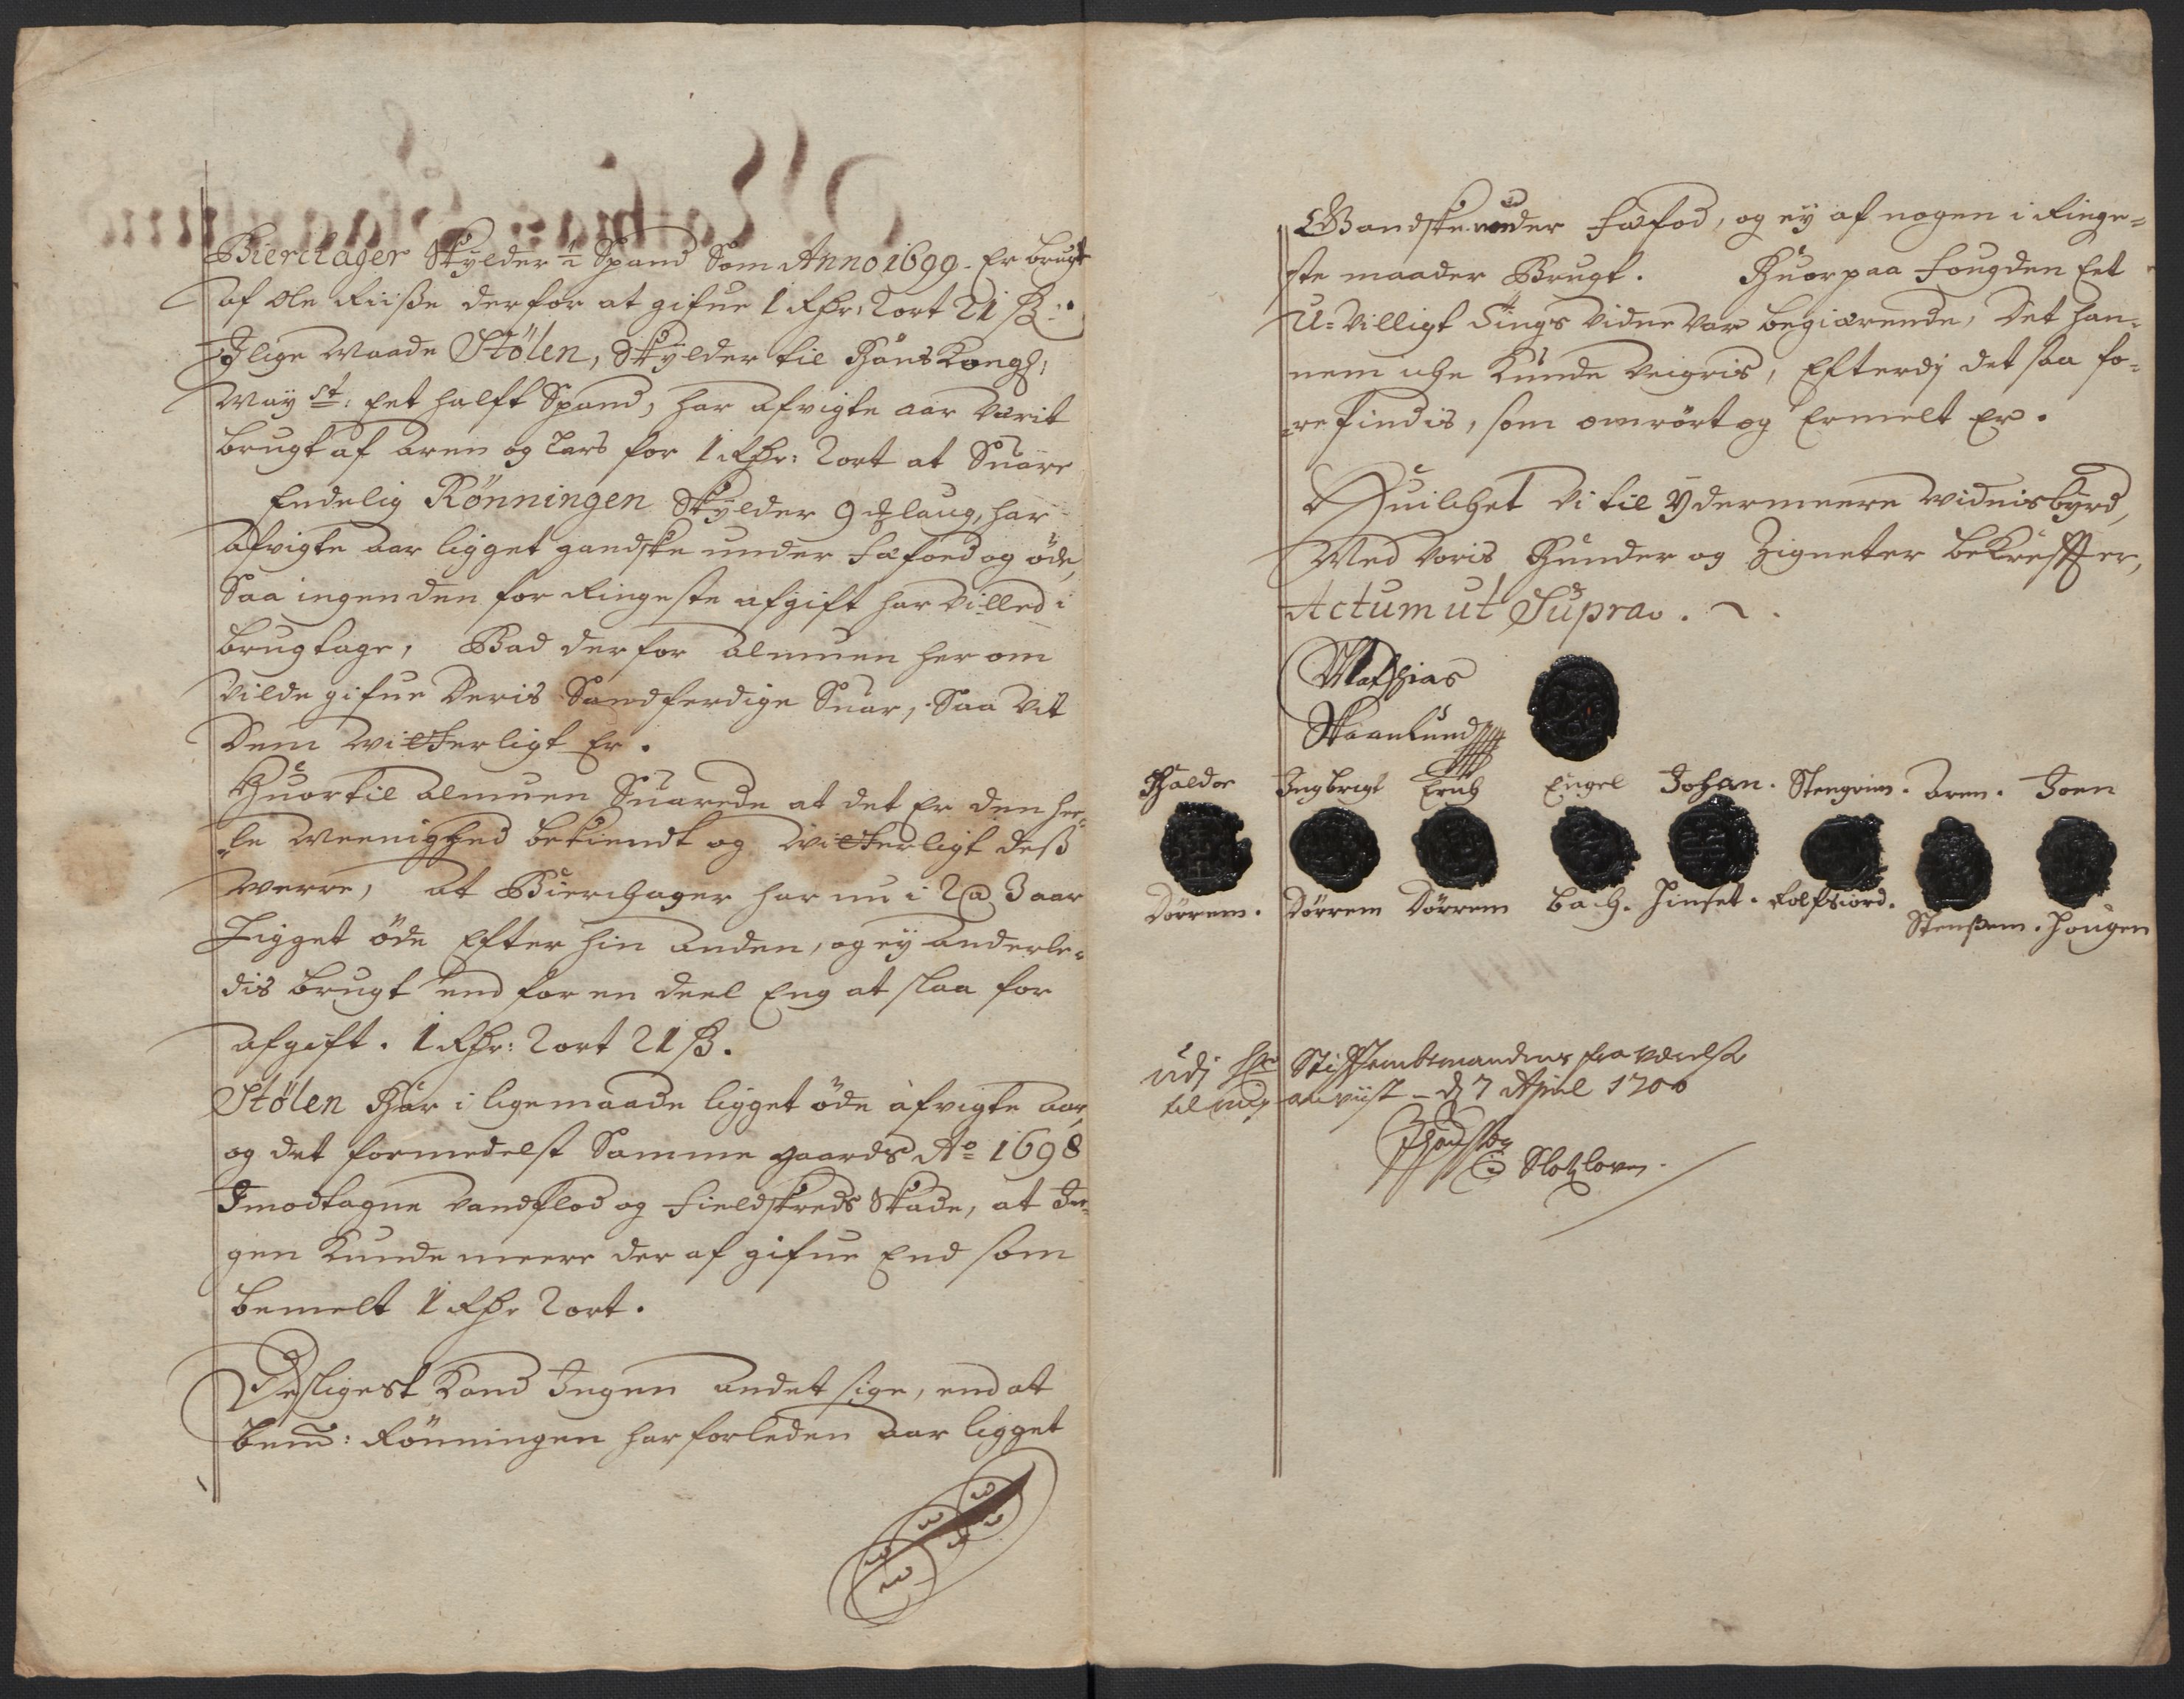 Bierchager Skylder ½ Spand Som Anno 1699. Er brugt
af Ole Riiße derfor at gifue 1 Rdr: 2 ort 21 ß:
J lige Maade Stölen, Skylder til Hans Kongl:
May st: Eet halft Spand, har afvigte aar Værit
brugt af Aren og Lars for 1 Rdr: 2 ort at Suare
Endelig Rönningen Skylder 9 laug, har
afvigte aar ligget gandske under Fæfoed og öde,
Saa ingen den for Ringeste afgift har villed i
brug tage, Bad derfor Almuen her om
vilde gifue Deris Sandferdige Suar, Saa vit
Dem witterligt Er.
Huortil Almuen Suarede at det Er den hee-
le Meenighed bekiendt og witterligt deß
werre, at Bierchager har nu i 2 à 3 aar
Ligget öde Efter hin anden, og ey anderle-
dis brugt end for en deel Eng at slaa for
afgift. 1 Rdr: 2 ort 21 ß.
Stölen Har i ligemaade ligget öde afvigte aar,
og det formedelst Samme gaards Ao 1698
Imodtagne Vandflod og Fieldskreds Skade, at In-
gen Kunde meere der af gifue End som
bemelt 1 Rdr 2 ort.
Desligest Kand Ingen andet sige, end at
bem: Rönningen har forleden aar ligget
Gandske under Fæfod, og ey af nogen i Ringe-
ste maader Brugt. Huorpaa Fougden Eet
U-villigt Tings Vidne Var begiærende, Det han-
nem iche Kunde Veigris, Efterdj det saa fo-
re findis, som omrört og Ermelt Er.
Huilchet Vi til Ydermeere Vidnisbyrd,
Med Voris Hænder og Zigneter bekreffter,
Actum ut Supra.
Mathias
Skaanlund
Haldor Ingbrigt Erich Engel Johan. Stengrim. Aren. Joen
Dörrem. Dörrem Dörrem Bach. Hinset. Rolfsiord. Stenßem. Hougen
udj Hr Stifftambtmandens fraværelse
til mig anviist d 7 April 1700
Slotzloven.